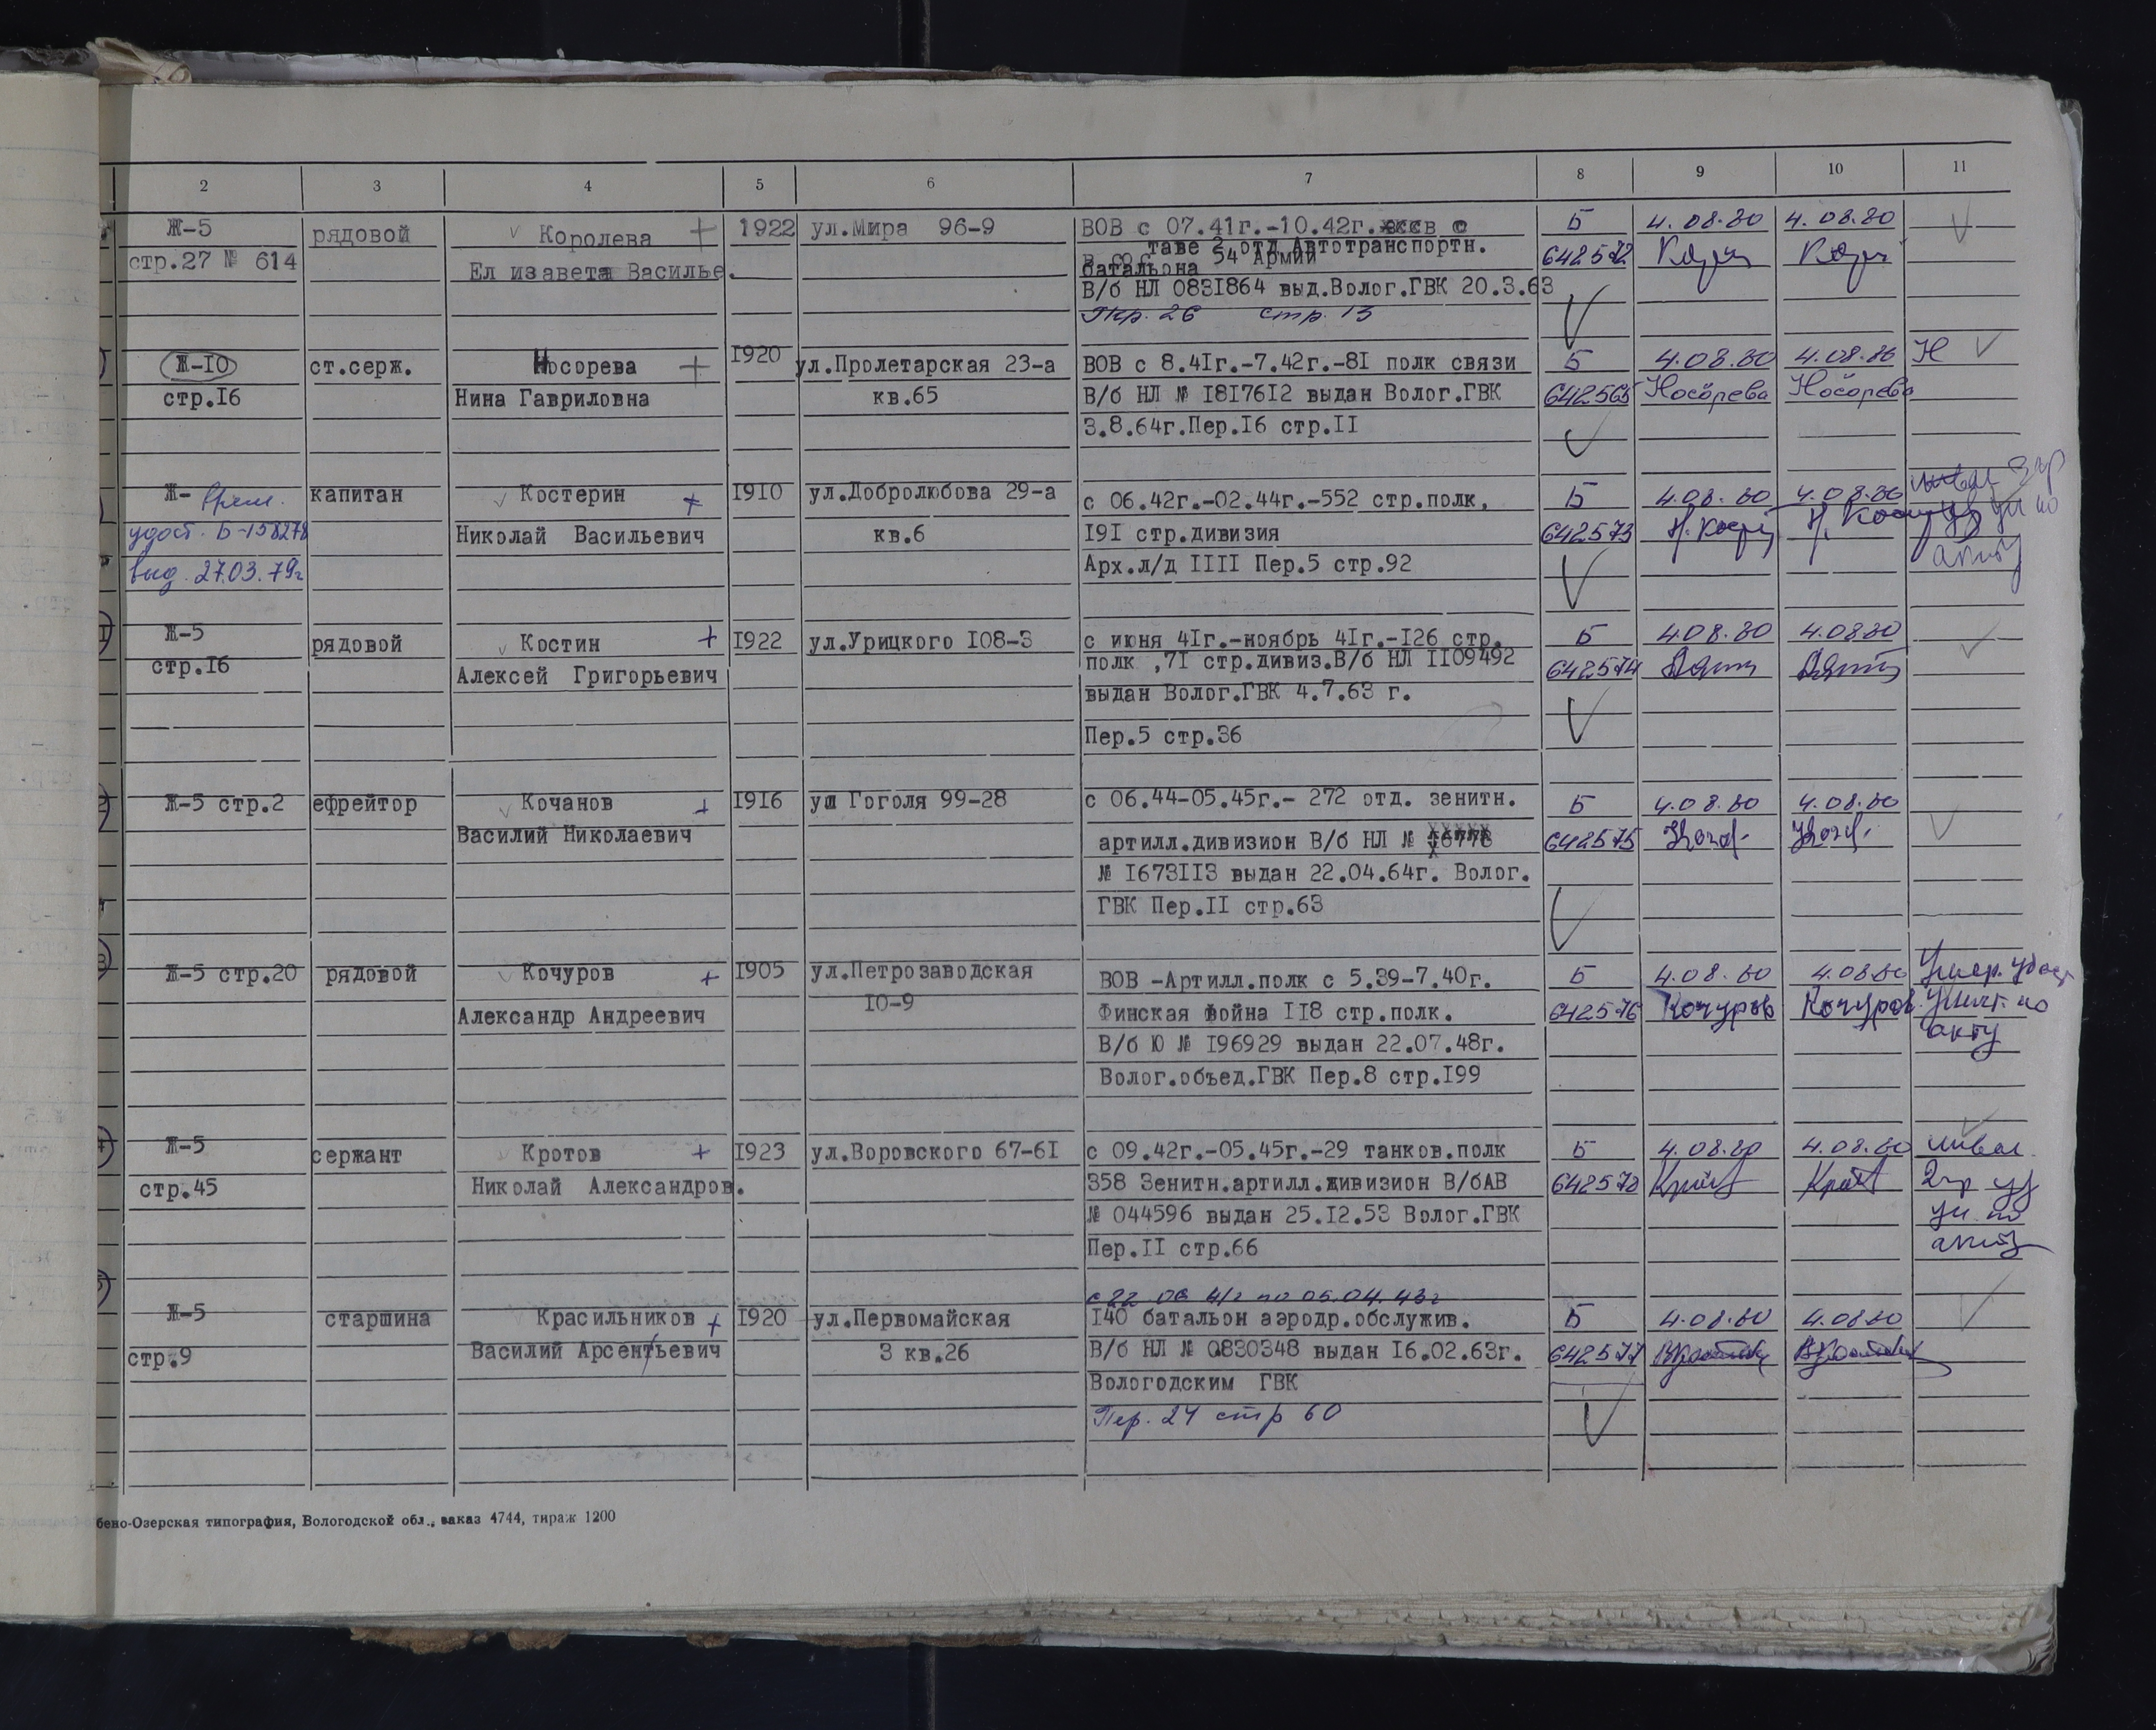 2 3 4 5 6 7 8 9 10 11
Ж-5 рядовой Королева 1922 ул.Мира 96-9 ВОВ с 07.41г.-10.42г. Б 4.08.80 4.08.80
стр.27 № 614 Елизавета Василье. в составе 2 отд Автотранспортн. 642572
батальона 54 Армии
В/б НЛ 0831864 выд.Волог.ГВК 20.3.63
Пер. 26 стр. 13
Ж-10 ст.серж. Носорева 1920 ул.Пролетарская 23-а ВОВ с 8.41г.-7.42г.-81 полк связи Б 4.08.80 4.08.80 Н
стр.16 Нина Гавриловна кв.65 В/б НЛ № 1817612 выдан Волог.ГВК 642565 Носорева Носорева
3.8.64г.Пер.16 стр.11
Ж- врем. капитан Костерин 1910 ул.Добролюбова 29-а с 06.42г.-02.44г.-552 стр.полк, Б 4.08.80 4.08.80 инвал 3гр
удост. Б-158278 Николай Васильевич кв.6 191 стр.дивизия 642573 уд ун по
выд. 27.03.79г Арх.л/д 1111 Пер.5 стр.92 акту
Ж-5 рядовой Костин 1922 ул.Урицкого 108-3 с июня 41г.-ноябрь 41г.-126 стр. Б 4.08.80 4.08.80
стр.16 Алексей Григорьевич полк ,71 стр.дивиз.В/б НЛ 1109492 642574
выдан Волог.ГВК 4.7.63 г.
Пер.5 стр.36
Ж-5 стр.2 ефрейтор Кочанов 1916 ул Гоголя 99-28 с 06.44-05.45г.- 272 отд. зенитн. Б 4.08.80 4.08.80
Василий Николаевич артилл.дивизион В/б НЛ № 642575
№ 1673113 выдан 22.04.64г. Волог.
ГВК Пер.11 стр.63
Ж-5 стр.20 рядовой Кочуров 1905 ул.Петрозаводская ВОВ -Артилл.полк с 5.39-7.40г. Б 4.08.80 4.08.80 Умер. удост
Александр Андреевич 10-9 Финская война 118 стр.полк. 642576 Кочуров Кочуров уничт. по
В/б Ю № 196929 выдан 22.07.48г. акту
Волог.объед.ГВК Пер.8 стр.199
Ж-5 сержант Кротов 1923 ул.Воровского 67-61 с 09.42г.-05.45г.-29 танков.полк Б 4.08.80 4.08.80 инвал.
стр.45 Николай Александров. 358 Зенитн.артилл.дивизион В/бАВ 642578 2гр уд
№ 044596 выдан 25.12.53 Волог.ГВК ун. по
Пер.11 стр.66 акту
с 22 06 41г по 05.04.43г
Ж-5 старшина Красильников 1920 ул.Первомайская 140 батальон аэродр.обслужив. Б 4.08.80 4.08.80
стр.9 Василий Арсентьевич 3 кв.26 В/б НЛ № 0830348 выдан 16.02.63г. 642577
Вологодским ГВК
Пер. 24 стр 60
бено-Озерская типография, Вологодской обл., заказ 4744, тираж 1200